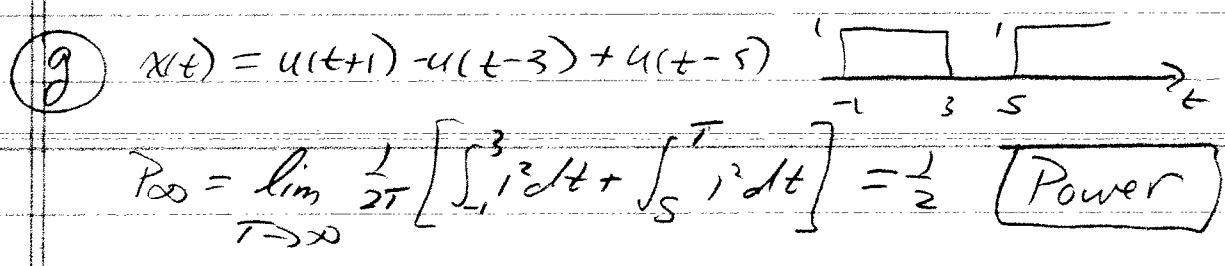 g x(t) = u(t+1) - u(t-3) + u(t-5) 1 1
-1 3 5 t
P∞ = lim T→∞ 1/2T [∫_{-1}^{3} 1² dt + ∫_{5}^{T} 1² dt] = 1/2 Power